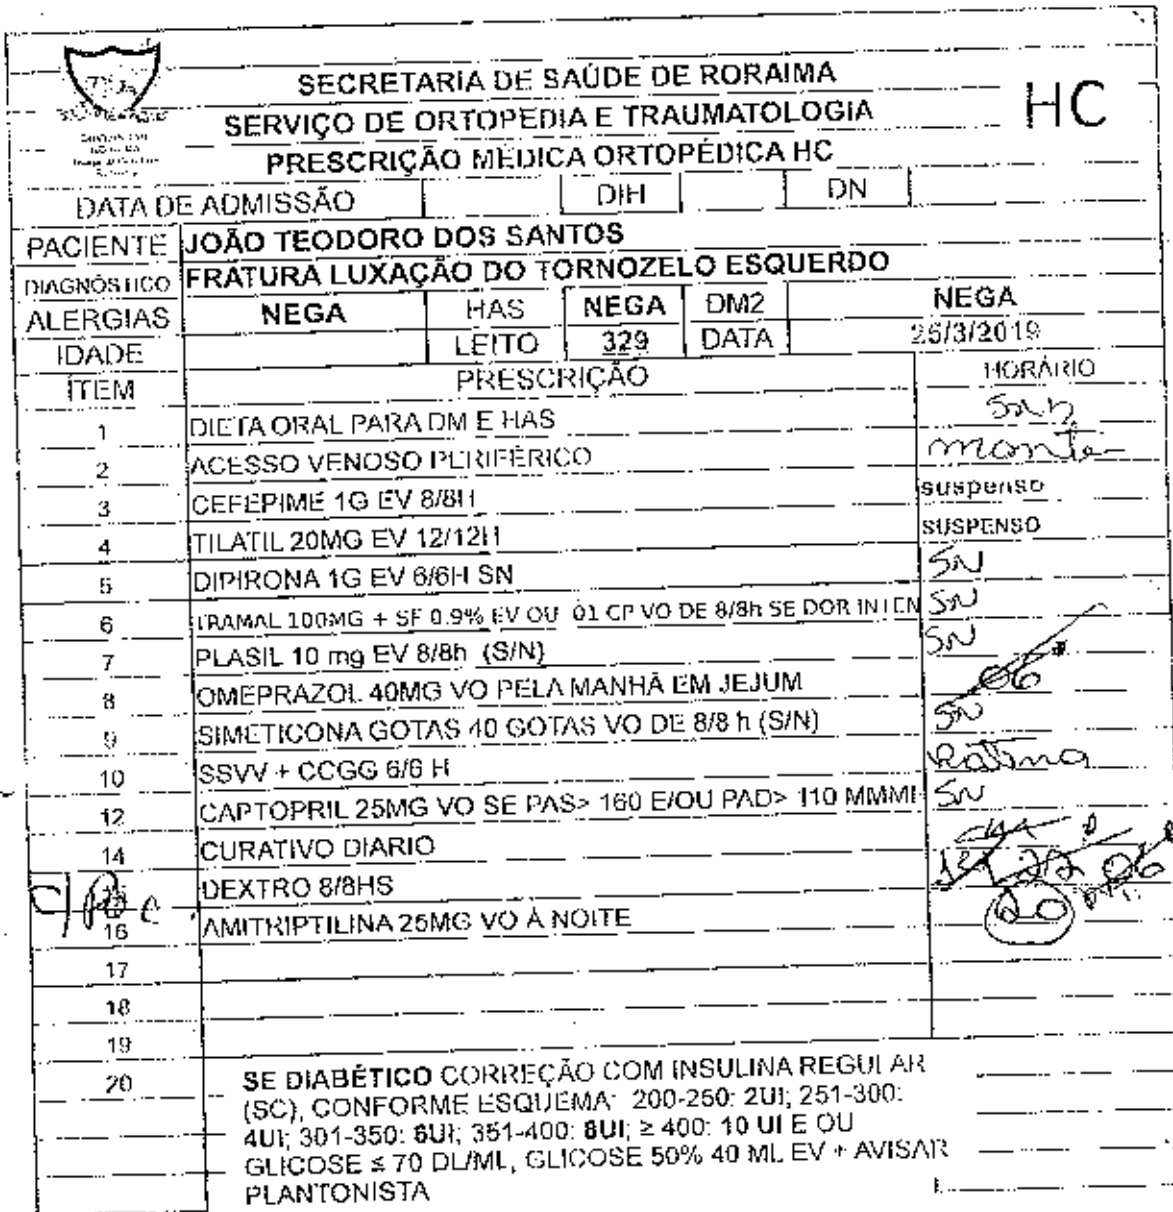 SECRETARIA DE SAÚDE DE RORAIMA
HC
SERVIÇO DE ORTOPEDIA E TRAUMATOLOGIA
PRESCRIÇÃO MÉDICA ORTOPÉDICA HC
DATA DE ADMISSÃO DIH DN
PACIENTE JOÃO TEODORO DOS SANTOS
DIAGNÓSTICO FRATURA LUXAÇÃO DO TORNOZELO ESQUERDO
ALERGIAS NEGA HAS NEGA DM2 NEGA
IDADE LEITO 329 DATA 25/3/2019
ÍTEM PRESCRIÇÃO HORÁRIO
1 DIETA ORAL PARA DM E HAS
2 ACESSO VENOSO PERIFÉRICO
3 CEFEPIME 1G EV 8/8H suspenso
4 TILATIL 20MG EV 12/12H SUSPENSO
5 DIPIRONA 1G EV 6/6H SN SN
6 TRAMAL 100MG + SF 0.9% EV OU 01 CP VO DE 8/8h SE DOR INTEN SN
7 PLASIL 10 mg EV 8/8h (S/N) SN
8 OMEPRAZOL 40MG VO PELA MANHÃ EM JEJUM 06
9 SIMETICONA GOTAS 40 GOTAS VO DE 8/8 h (S/N) SN
10 SSVV + CCGG 6/6 H Rotina
12 CAPTOPRIL 25MG VO SE PAS> 160 E/OU PAD> 110 MMMH SN
14 CURATIVO DIARIO
DEXTRO 8/8HS 22 06
16 AMITRIPTILINA 25MG VO À NOITE 20
17
18
19
20 SE DIABÉTICO CORREÇÃO COM INSULINA REGULAR
(SC), CONFORME ESQUEMA: 200-250: 2UI; 251-300:
4UI; 301-350: 6UI; 351-400: 8UI; ≥ 400: 10 UI E OU
GLICOSE ≤ 70 DL/ML, GLICOSE 50% 40 ML EV + AVISAR
PLANTONISTA